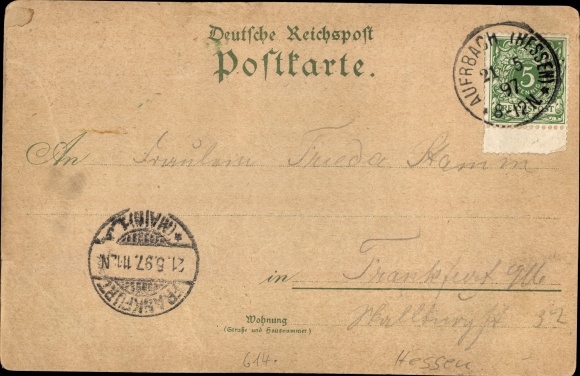 Deutsche Reichspost
Postkarte.
AUERBACH (HESSEN)
21 5
97
8-12N.
5
An Fräulein Frieda Stamm
FRANKFURT (MAIN)
21.5.97.
in Frankfurt
Wohnung
(Straße und Hausnummer)
Wallburgstr 32
614.
Hessen